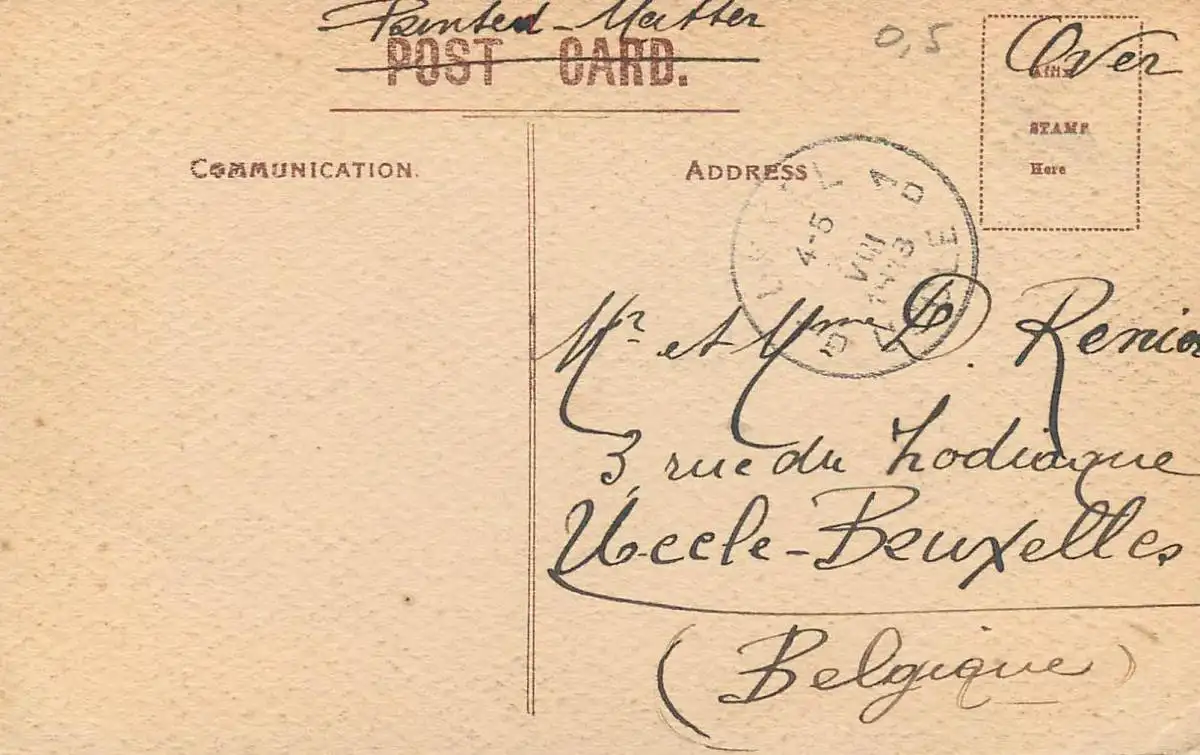 Printed-Matter
POST CARD.
0,5
Over
Affix
STAMP
Here
COMMUNICATION.
ADDRESS
4-5
VIII
Mr et Mme D. Renio
3, rue du Zodiaque
Uccle-Bruxelles
(Belgique)